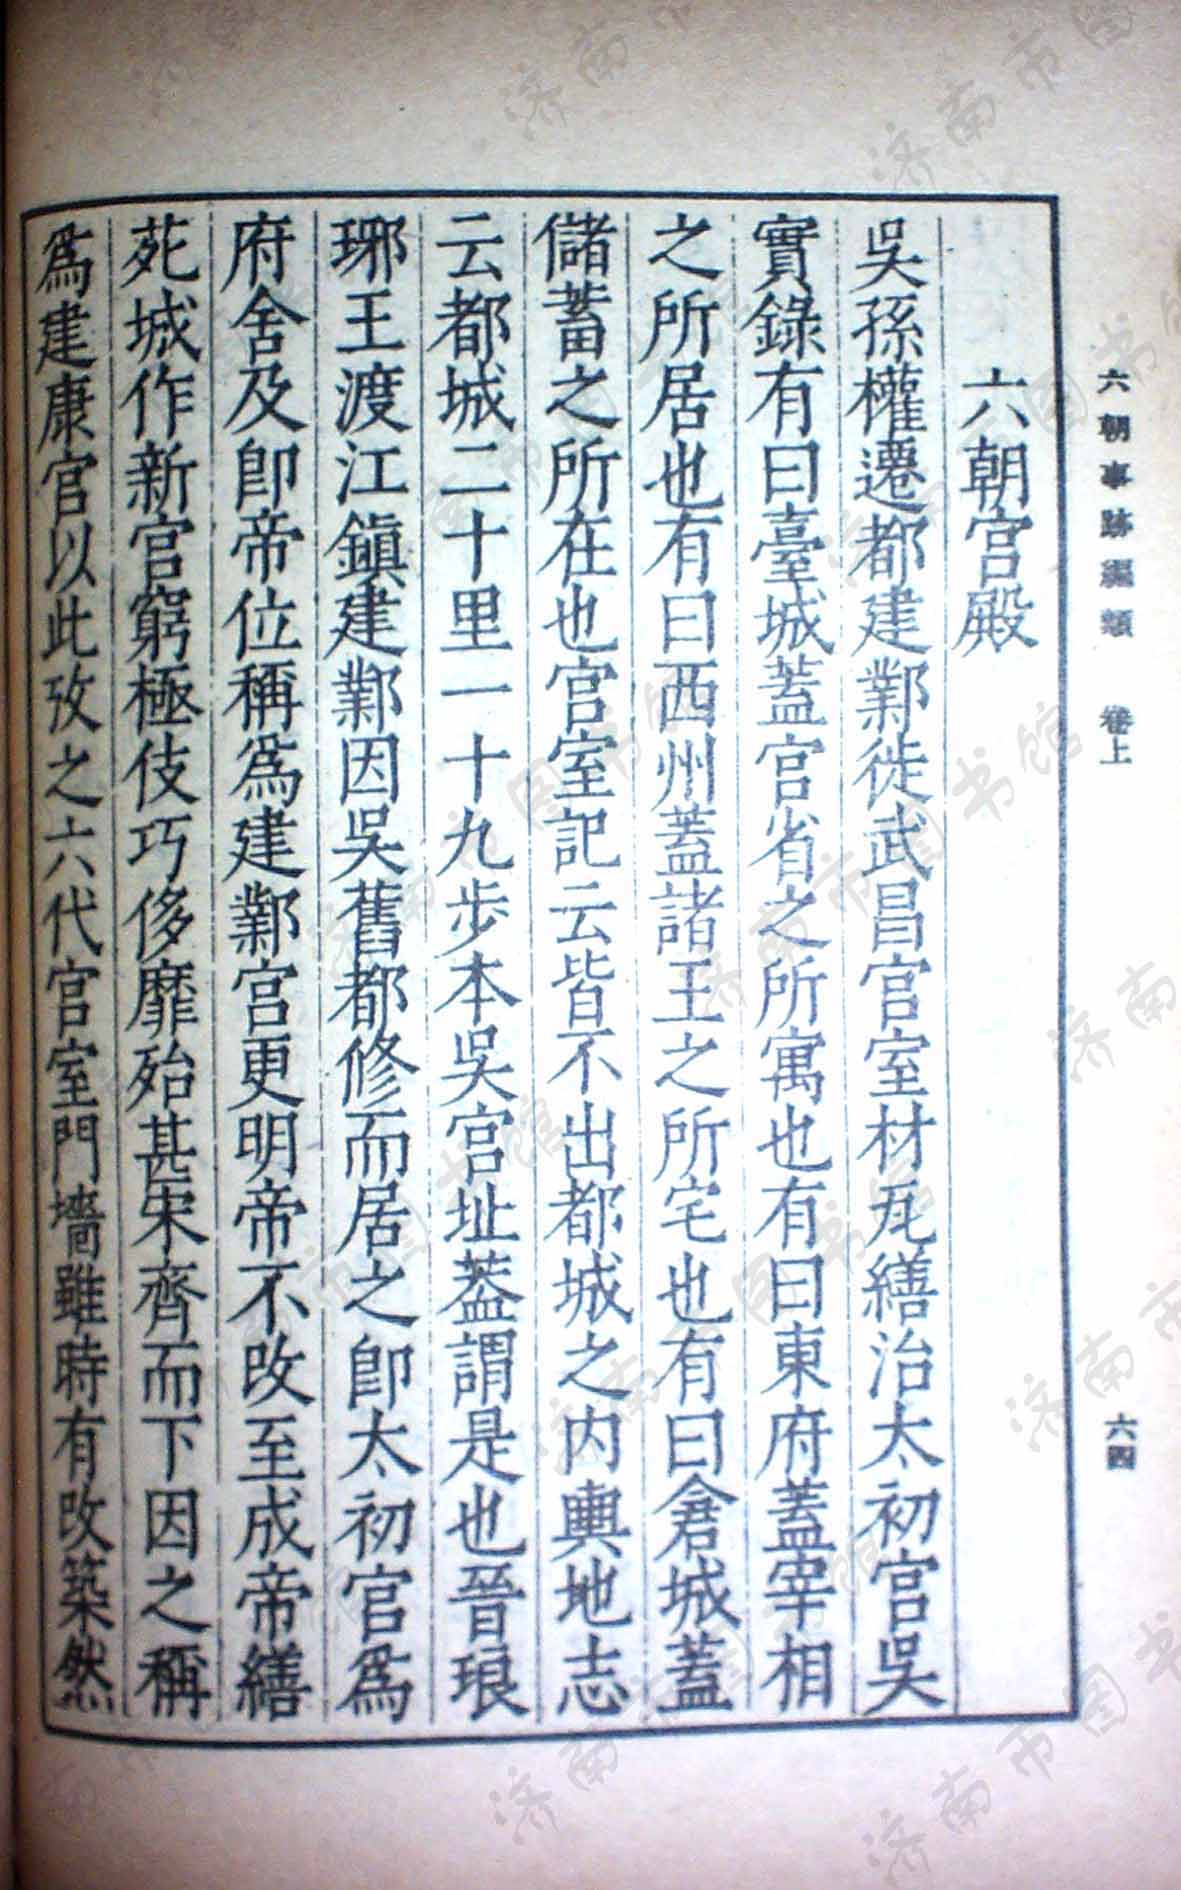 六朝事跡編類　卷上　六四
六朝宮殿
吳孫權遷都建鄴徙武昌宮室材瓦繕治太初宮吳
實錄有曰臺城蓋宮省之所寓也有曰東府蓋宰相
之所居也有曰西州蓋諸王之所宅也有曰倉城蓋
儲蓄之所在也宮室記云皆不出都城之內輿地志
云都城二十里一十九步本吳宮址蓋謂是也晉琅
琊王渡江鎮建鄴因吳舊都修而居之卽太初宮爲
府舍及卽帝位稱爲建鄴宮更明帝不改至成帝繕
苑城作新宮窮極伎巧侈靡殆甚宋齊而下因之稱
爲建康宮以此攷之六代宮室門墻雖時有改築然
济南市图书馆